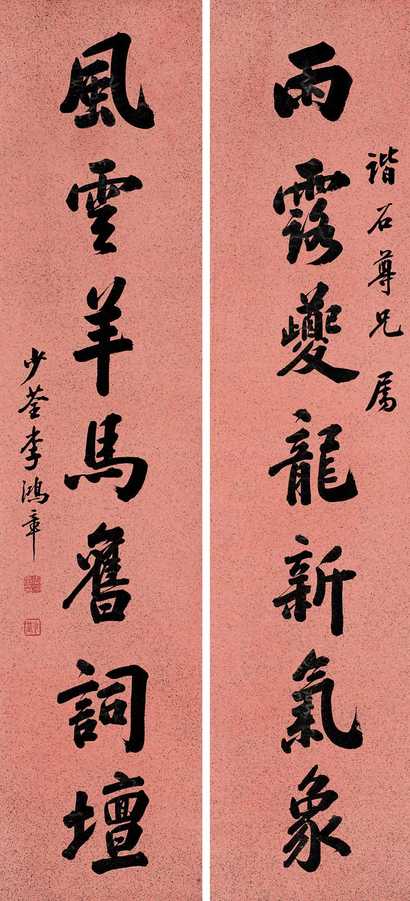 諧石尊兄屬
雨露夔龍新氣象
風雲羊馬舊詞壇
少荃李鴻章